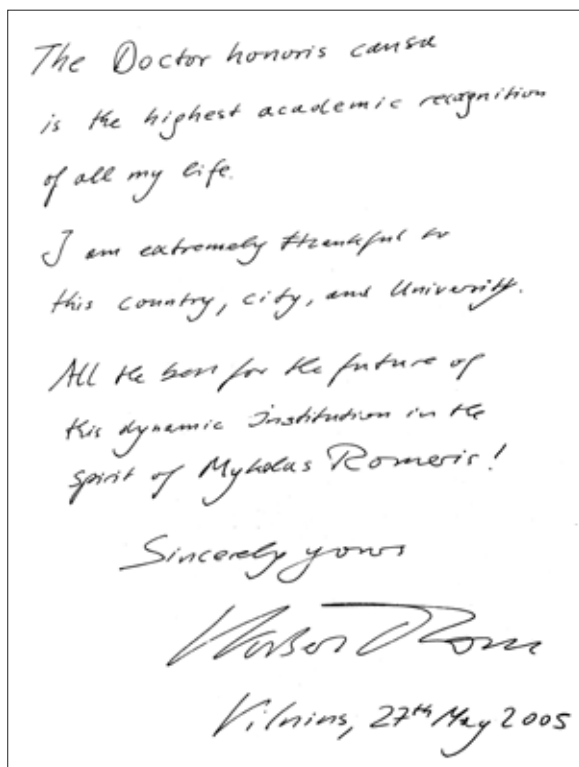 The Doctor honoris causa
is the highest academic recognition
of all my life.
I am extremely thankful to
this country, city, and University.
All the best for the future of
this dynamic Institution in the
spirit of Mykolas Romeris!
Sincerely yours
Vilnius, 27th May 2005